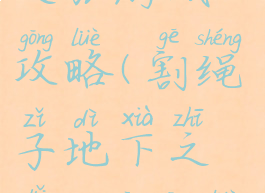 gōng lüè gē shéng
攻略(割绳
zǐ dì xià zhī
子地下之